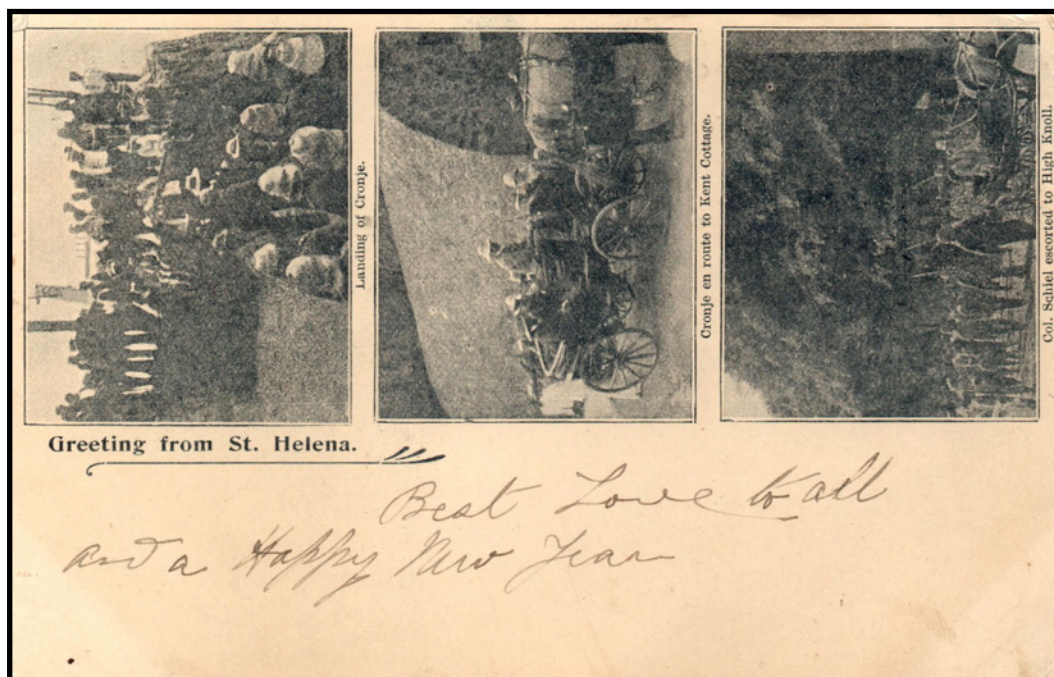 Landing of Cronje.
Cronje en route to Kent Cottage.
Col. Schiel escorted to High Knoll.
Greeting from St. Helena.
Best Love to all
and a Happy New Year